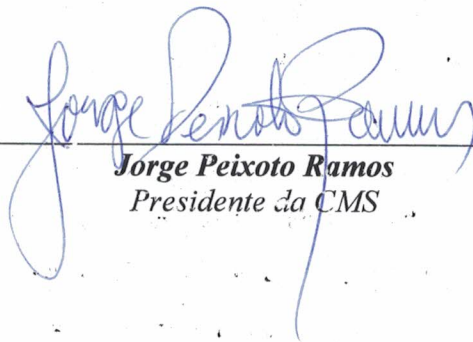 Jorge Peixoto Ramos
Jorge Peixoto Ramos
Presidente da CMS